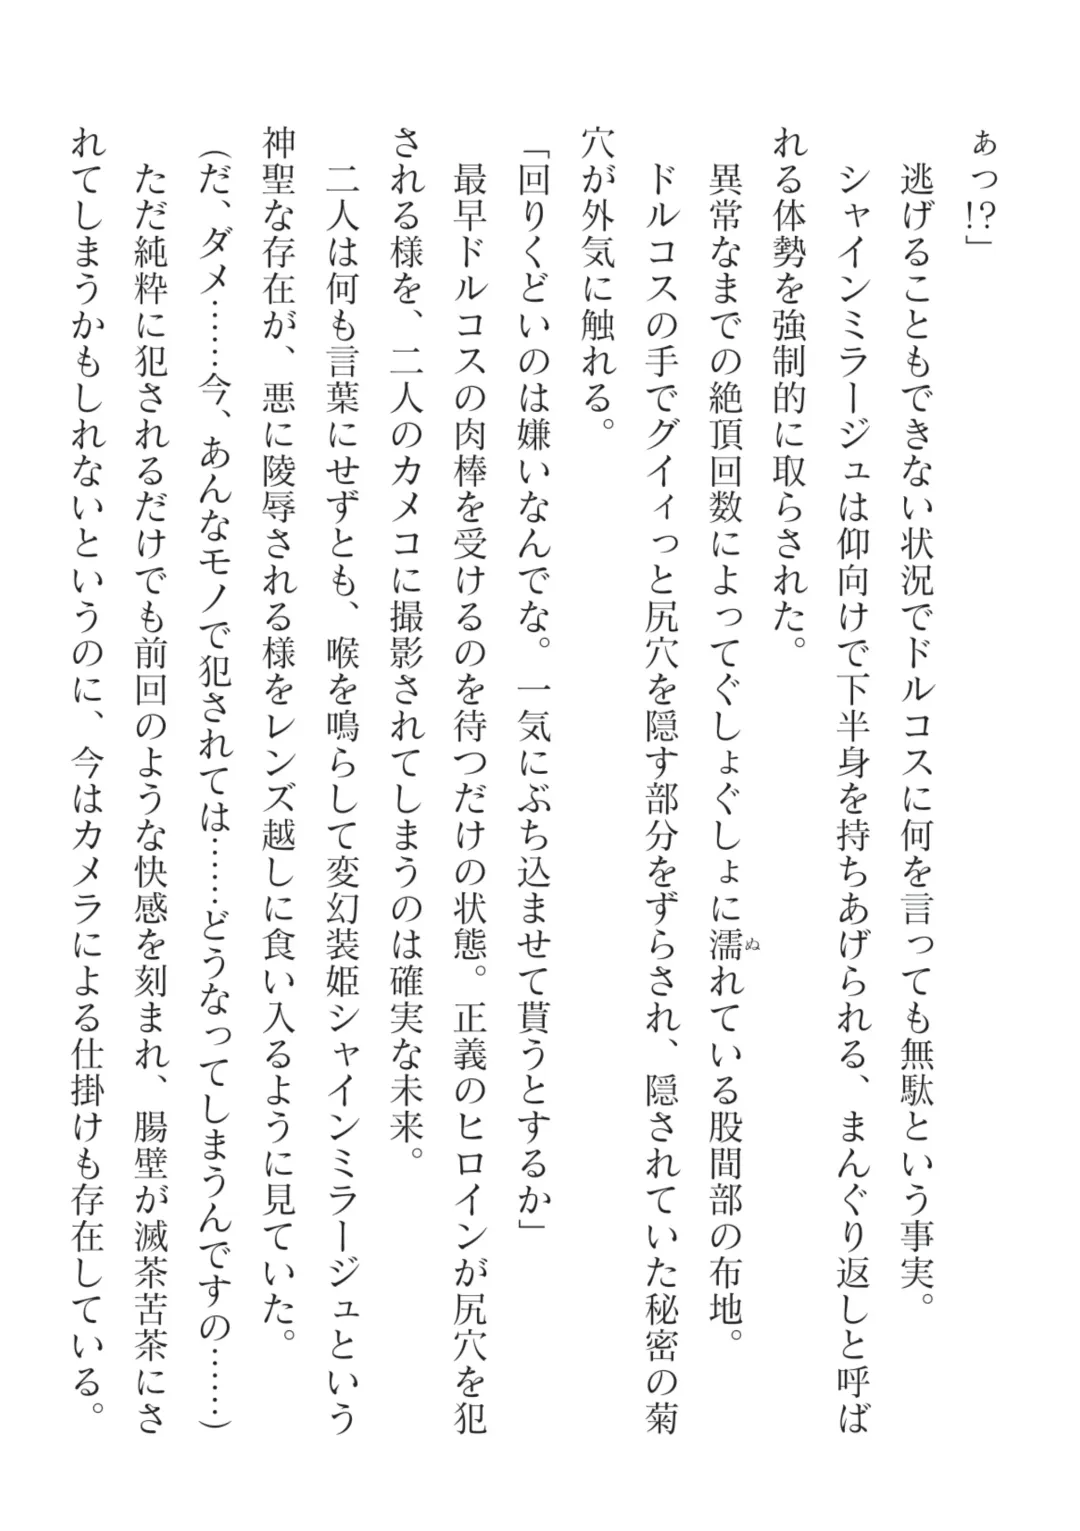 ぁっ!?」
逃げることもできない状況でドルコスに何を言っても無駄という事実。
シャインミラージュは仰向けで下半身を持ちあげられる、まんぐり返しと呼ば
れる体勢を強制的に取らされた。
異常なまでの絶頂回数によってぐしょぐしょに濡れている股間部の布地。
ドルコスの手でグイィっと尻穴を隠す部分をずらされ、隠されていた秘密の菊
穴が外気に触れる。
「回りくどいのは嫌いなんでな。一気にぶち込ませて貰うとするか」
最早ドルコスの肉棒を受けるのを待つだけの状態。正義のヒロインが尻穴を犯
される様を、二人のカメコに撮影されてしまうのは確実な未来。
二人は何も言葉にせずとも、喉を鳴らして変幻装姫シャインミラージュという
神聖な存在が、悪に陵辱される様をレンズ越しに食い入るように見ていた。
(だ、ダメ……今、あんなモノで犯されては……どうなってしまうんですの……)
ただ純粋に犯されるだけでも前回のような快感を刻まれ、腸壁が滅茶苦茶にさ
れてしまうかもしれないというのに、今はカメラによる仕掛けも存在している。